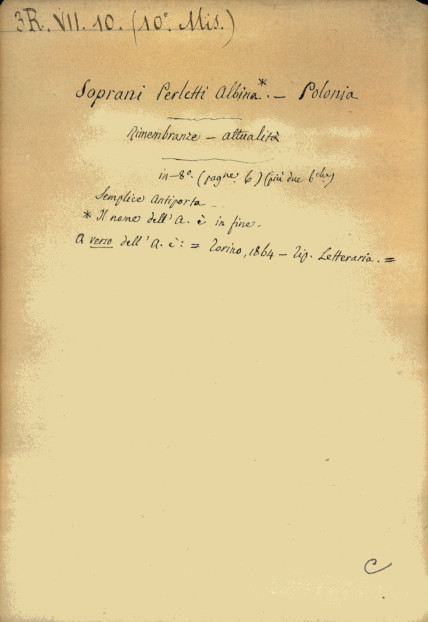 3R. VII. 10. (10.° Mis.)
Soprani Perletti Albina*. — Polonia
Rimembranze — attualità
in-8°. (pagne. 6) (più due bche)
Semplice Antiporta —
* Il nome dell'A. è in fine.
A verso dell'A. è: = Torino, 1864 — Tip. Letteraria. =
C